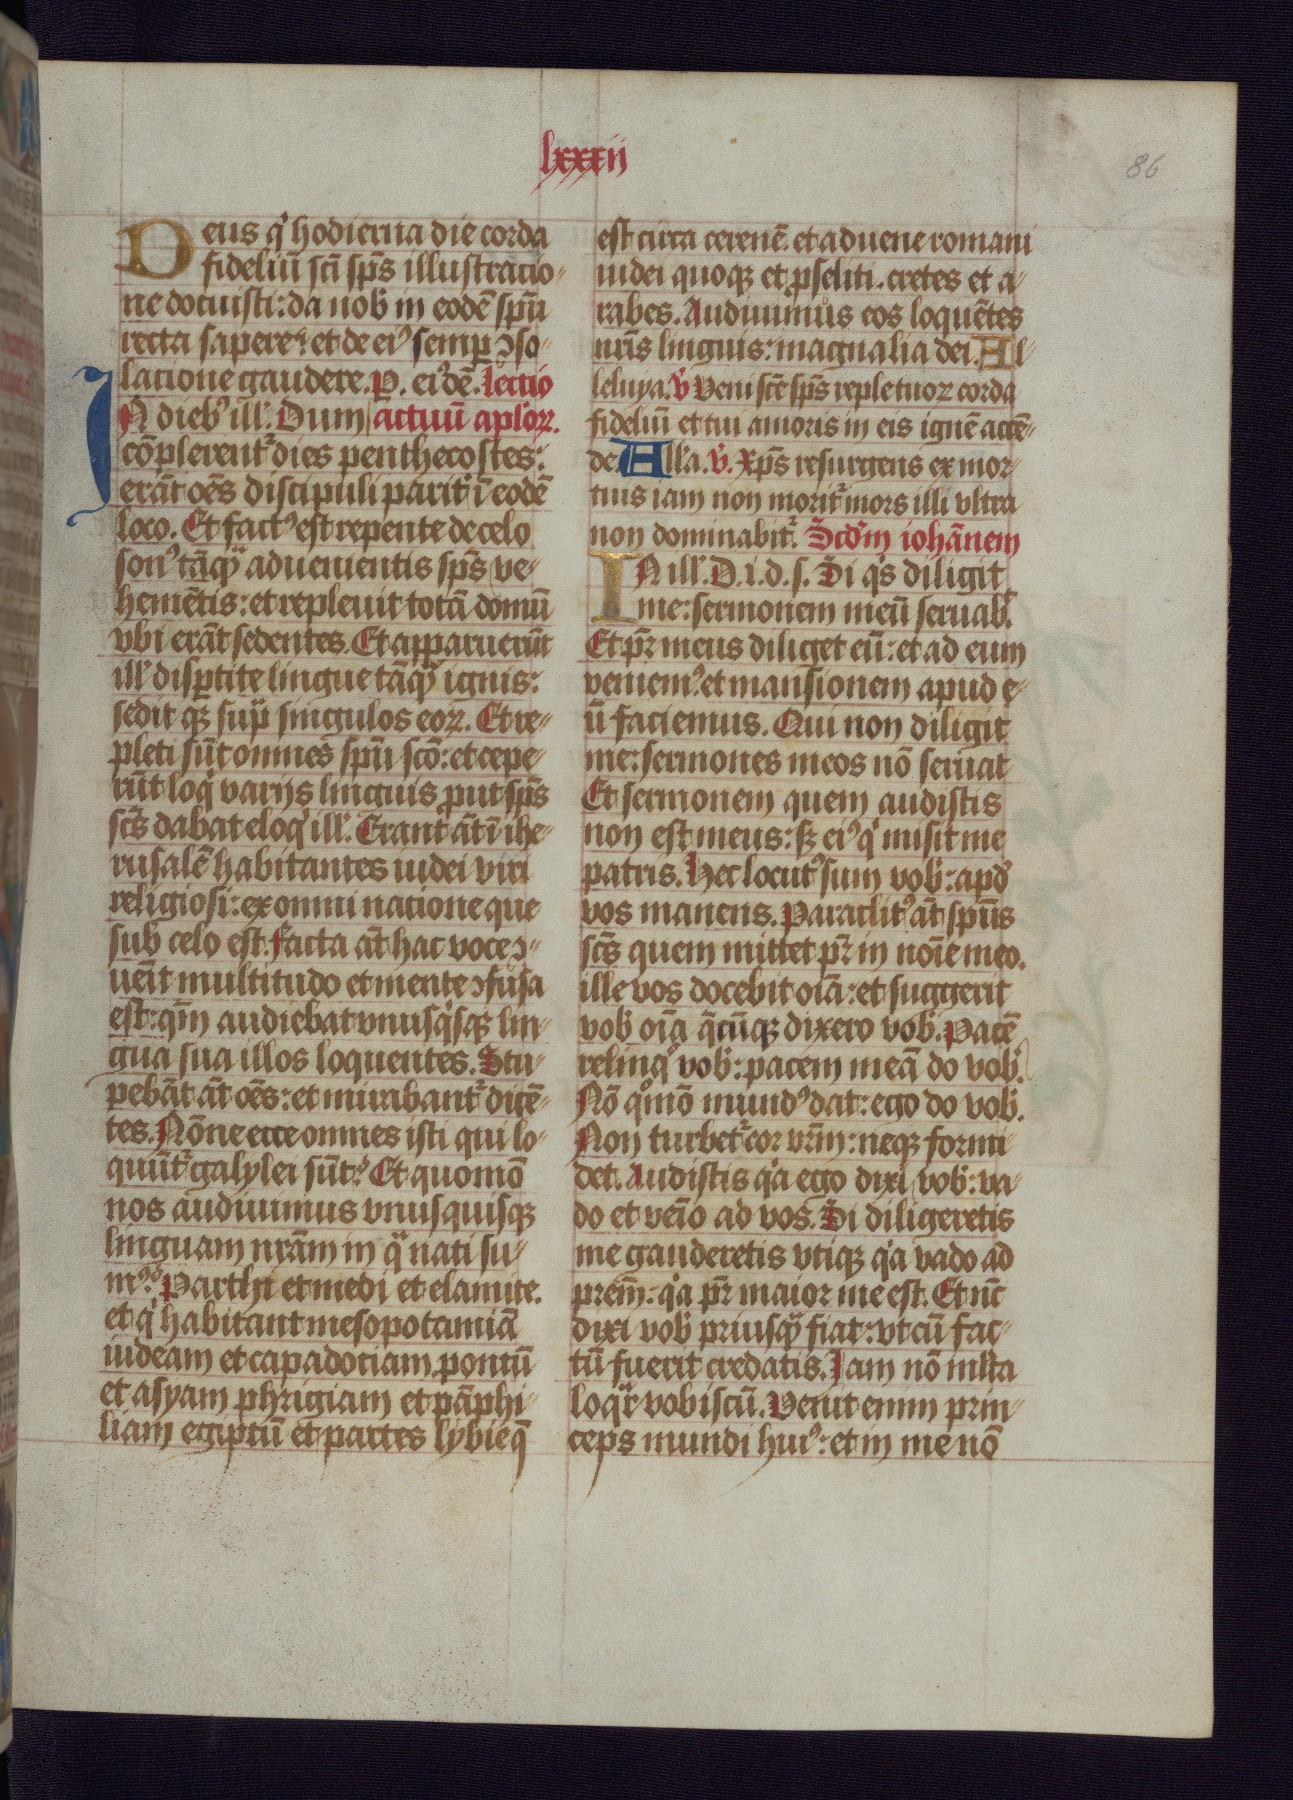 lxxxii
86
Deus q' hodierna die corda
fideliū sc̄i sp̄s illustracio-
ne docuisti: da nob' in eodē spū
recta sapere: et de ei' semp ꝯso-
lacione gaudere. P. ei'dē. lectio
IN dieb' ill'. Dum actuū aplor.
cōplerent' dies penthecostes:
erāt oēs discipuli parit' ī eodē
loco. Et fact' est repente de celo
son' tāq̄ aduenientis sp̄s ve-
hemētis: et repleuit totā domū
vbi erāt sedentes. Et apparuerūt
ill' disptite lingue tāq̄ ignis:
sedit qꝫ sup singulos eoꝝ. Et re-
pleti sūt omnes spū scō: et cepe-
rūt loq' varijs linguis put sp̄s
sc̄s dabat eloq' ill'. Erant āt ī ihe-
rusalē habitantes iudei viri
religiosi: ex omni nacione que
sub celo est. Facta āt hac voce ꝯ-
uēit multitudo et mente ꝯfusa
est: qm̄ audiebat vnusq'sqꝫ lin-
gua sua illos loquentes. Stu-
pebāt āt oēs: et mirabant' dicē-
tes. Nōne ecce omnes isti qui lo-
quūt' galylei sūt? Et quomō
nos audiuimus vnusquisqꝫ
linguam nrām in q̄ nati su-
m'? Parthi et medi et elamite.
et q' habitant mesopotamiā
iudeam et capadociam. pontū
et asyam phrigiam et pāphi-
liam egiptū et partes lybie q̄
est circa cerenē. et aduene romani
iudei quoqꝫ et pseliti. cretes et a-
rabes. Audiuimus eos loquētes
nr̄is linguis: magnalia dei. Al-
leluya. v̄ Veni sc̄e sp̄s reple tuoꝝ corda
fideliū et tui amoris in eis ignē accē-
de. Alla. v̄. Xp̄s resurgens ex mor-
tuis iam non morit' mors illi vltra
non dominabit'. Scd'm iohānem
IN ill'. D. i. d. s. Si q's diligit
me: sermonem meū seruab'.
Et pr̄ meus diliget eū: et ad eum
veniem' et mansionem apud e-
ū faciemus. Qui non diligit
me: sermones meos nō seruat
Et sermonem quem audistis
non est meus: sꝫ ei' q' misit me
patris. Hec locut' sum vob': apd'
vos manens. Paraclit' āt spūs
sc̄s quem mittet pr̄ in noīe meo.
ille vos docebit oīa: et suggerit
vob' oīa q̄cūqꝫ dixero vob'. Pacē
relinq' vob': pacem meā do vob'.
Nō q'mō mund' dat: ego do vob'.
Non turbet' cor vrm̄: neqꝫ formi-
det. Audistis q'a ego dixi vob': va-
do et vēio ad vos. Si diligeretis
me gauderetis vtiqꝫ q'a vado ad
prem̄: q'a pr̄ maior me est. Et nūc
dixi vob' priusq̄ fiat: vt cū fac-
tū fuerit credatis. Iam nō mlta
loq̄r vobiscū. Venit enim prin-
ceps mundi hui': et in me nō